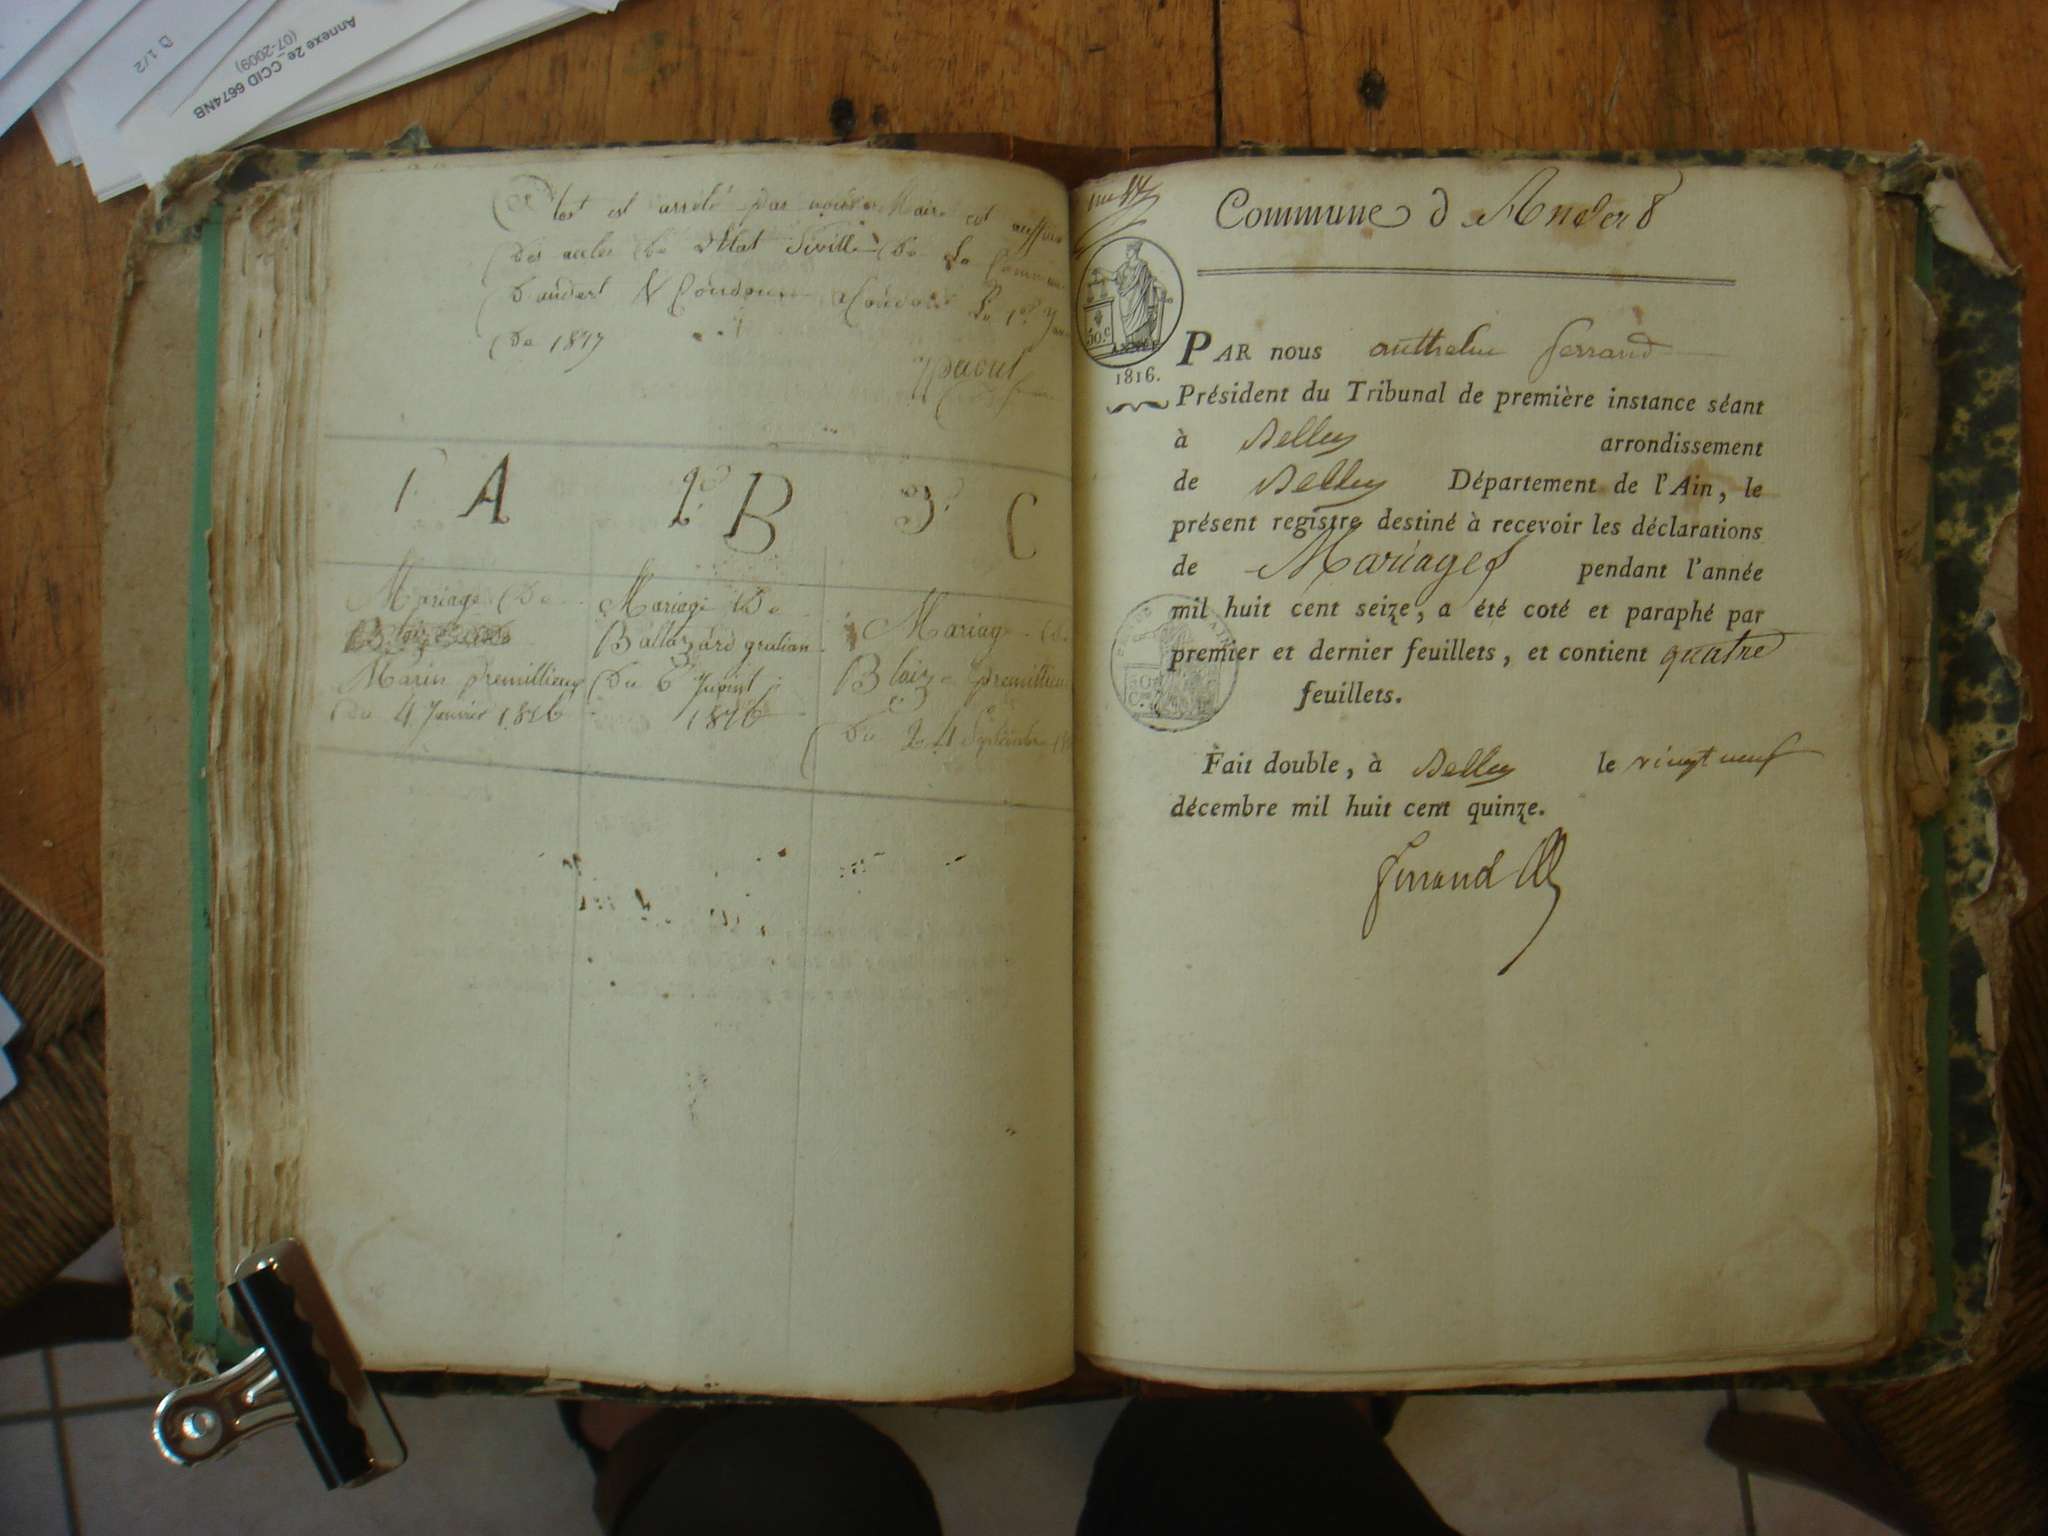 Annexe 2e_CCID 6674NB
(07-2009)
D 1/2
Clot est arrêté par nous Maire est offisie
des actes de Etat Siville de La Commune
d'andert & Condon a Condon Le 1er Jan
de 1817
1. A
2. B
3. C
Mariage De
Marin premillieux
du 4 Janvier 1816
Mariage De
Baltazard gratian
Du 6 Juin
1816
Mariage de
Blaize premillieux
Du 24 Septembre
Commune d'Andert
50.c
1816.
PAR nous antthelme ferrand
Président du Tribunal de première instance séant
à Belley arrondissement
de Belley Département de l'Ain, le
présent registre destiné à recevoir les déclarations
de Mariages pendant l'année
mil huit cent seize, a été coté et paraphé par
premier et dernier feuillets, et contient quatre
feuillets.
Fait double, à Belley le vingt neuf
décembre mil huit cent quinze.
ferrand